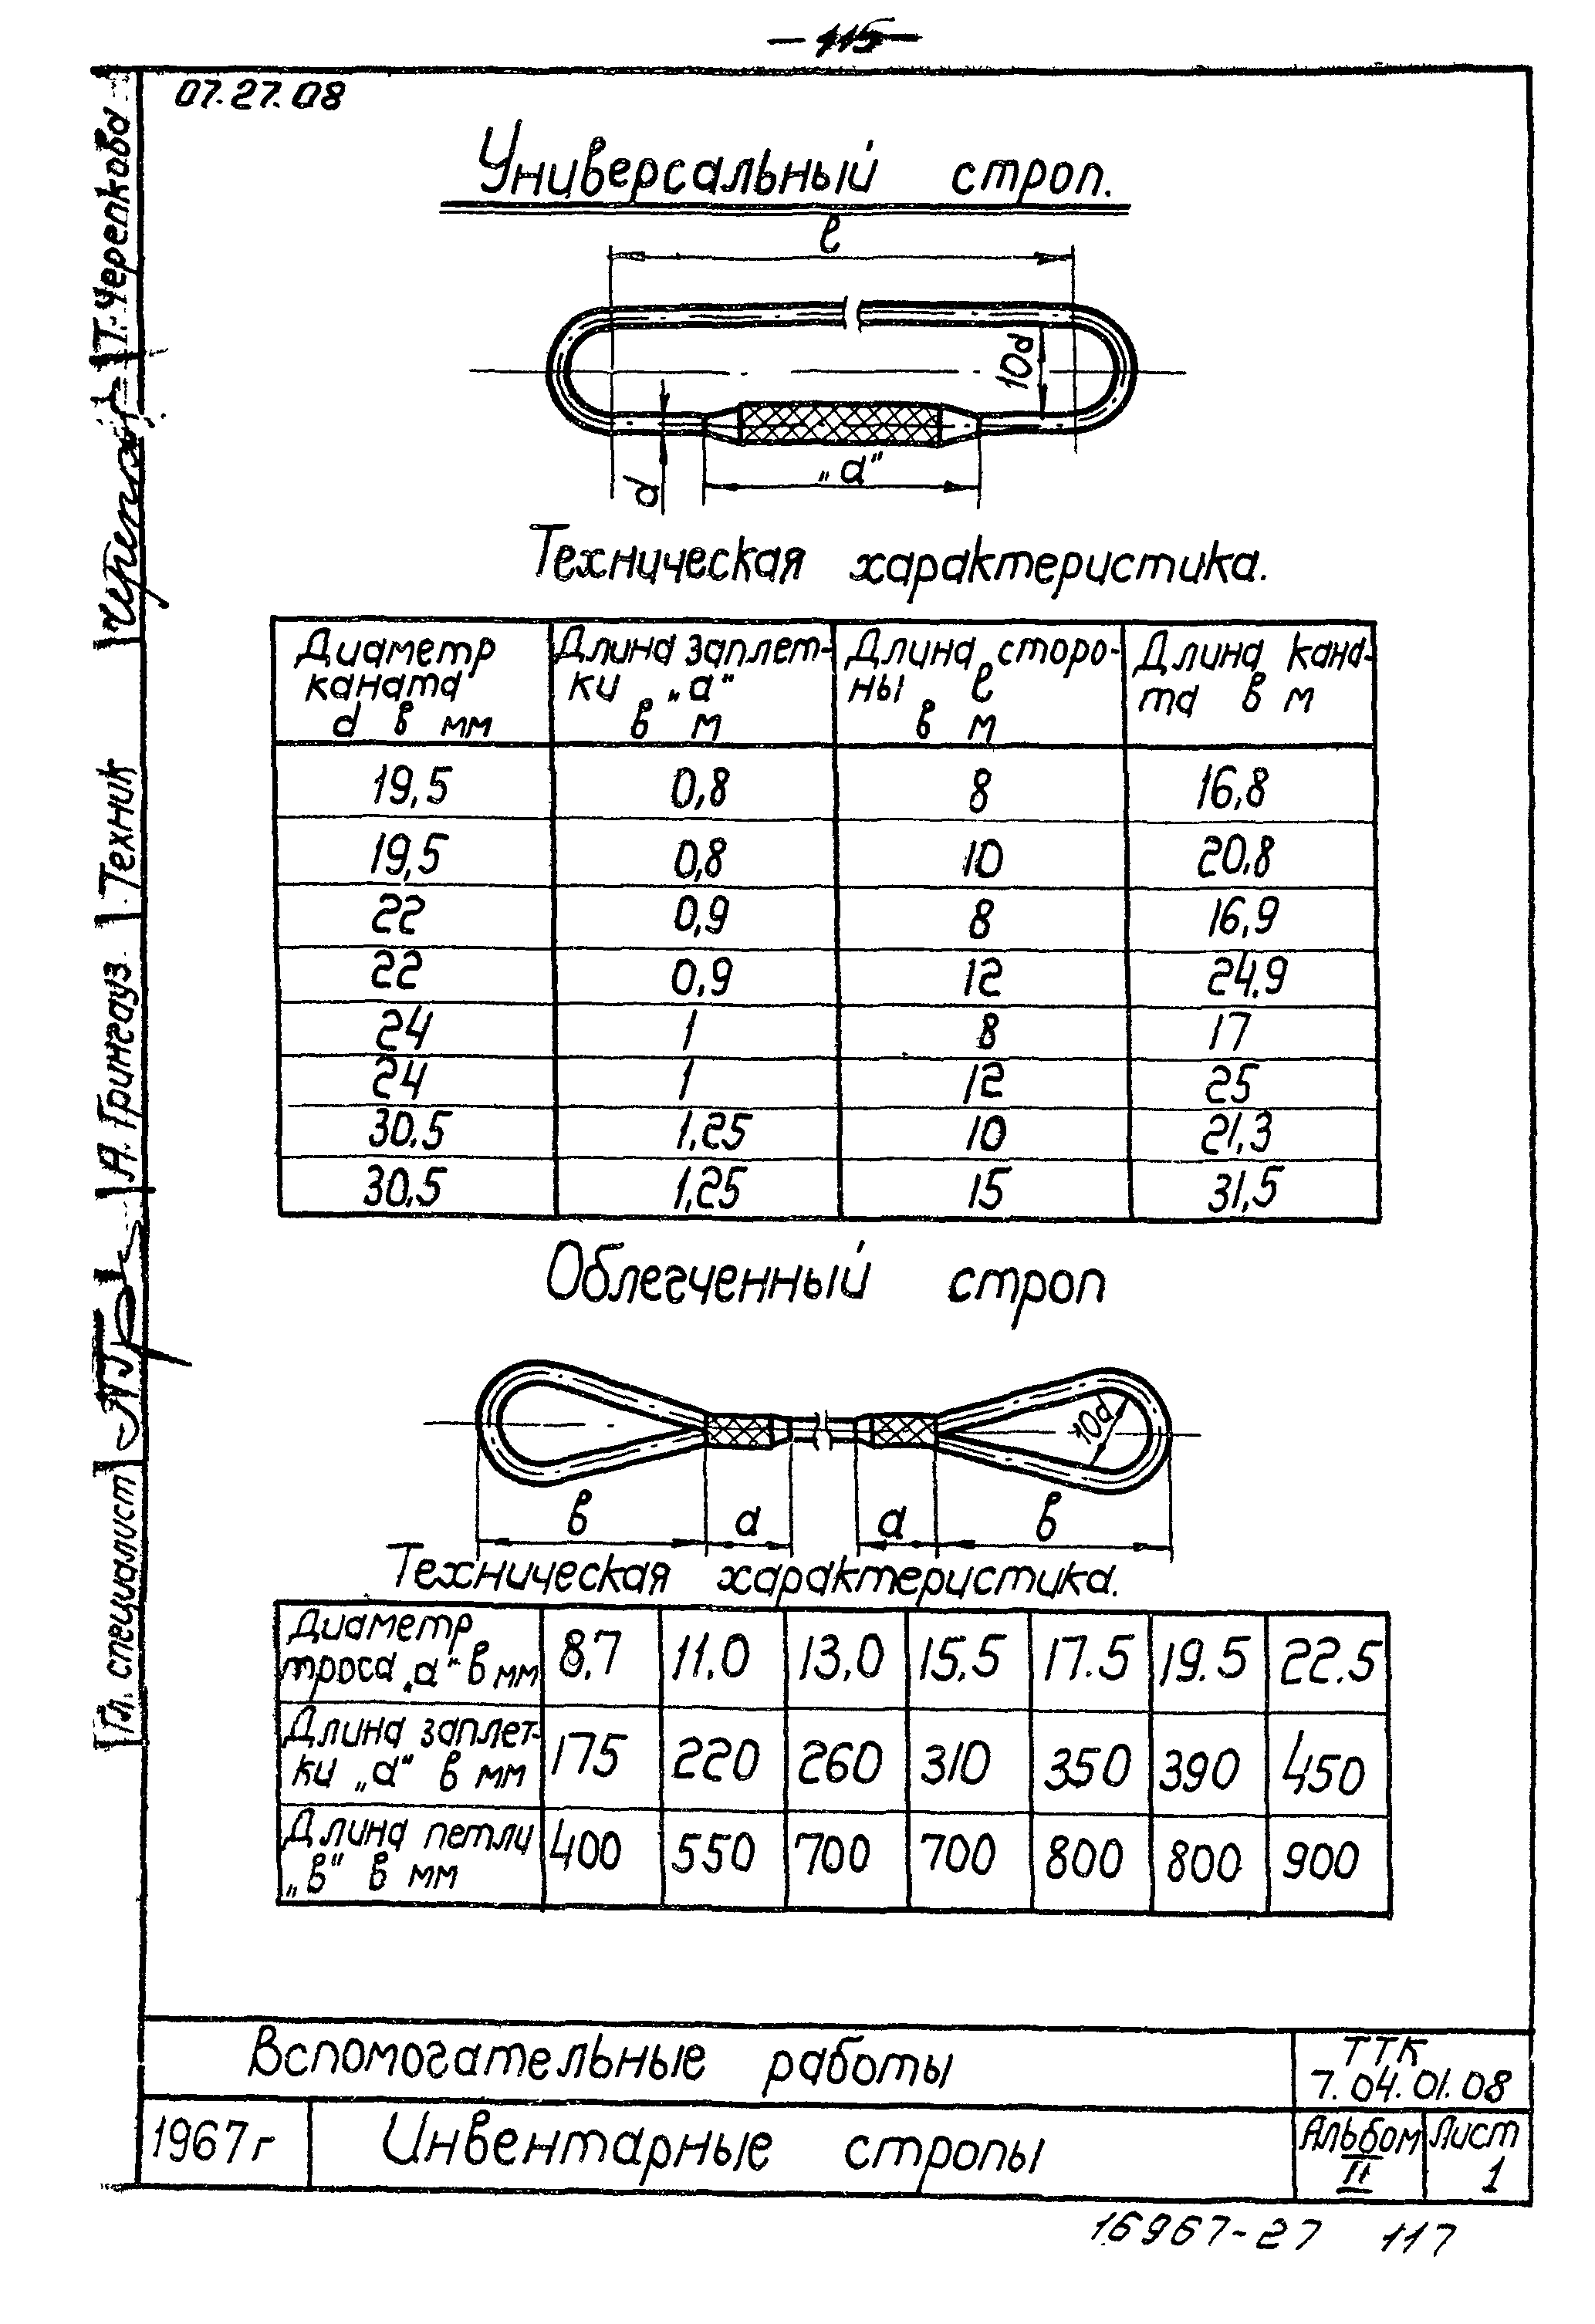 - 115 -
07.27.08
Универсальный строп.
ℓ
10d
d
„а"
Техническая характеристика.
Диаметр каната d в мм | Длина заплет- ки „а" в м | Длина сторо- ны ℓ в м | Длина кана- та в м
19,5 | 0,8 | 8 | 16,8
19,5 | 0,8 | 10 | 20,8
22 | 0,9 | 8 | 16,9
22 | 0,9 | 12 | 24,9
24 | 1 | 8 | 17
24 | 1 | 12 | 25
30.5 | 1,25 | 10 | 21,3
30,5 | 1,25 | 15 | 31,5
Облегченный строп
10d
в а а в
Техническая характеристика.
Диаметр троса „а" в мм | 8,7 | 11,0 | 13,0 | 15,5 | 17.5 | 19.5 | 22.5
Длина заплет- ки „а" в мм | 175 | 220 | 260 | 310 | 350 | 390 | 450
Длина петли „в" в мм | 400 | 550 | 700 | 700 | 800 | 800 | 900
Вспомогательные работы
ТТК
7.04.01.08
1967г
Инвентарные стропы
Альбом II
Лист 1
Гл. специалист
А. Грингауз
Техник
Т. Черепкова
16967-27 117